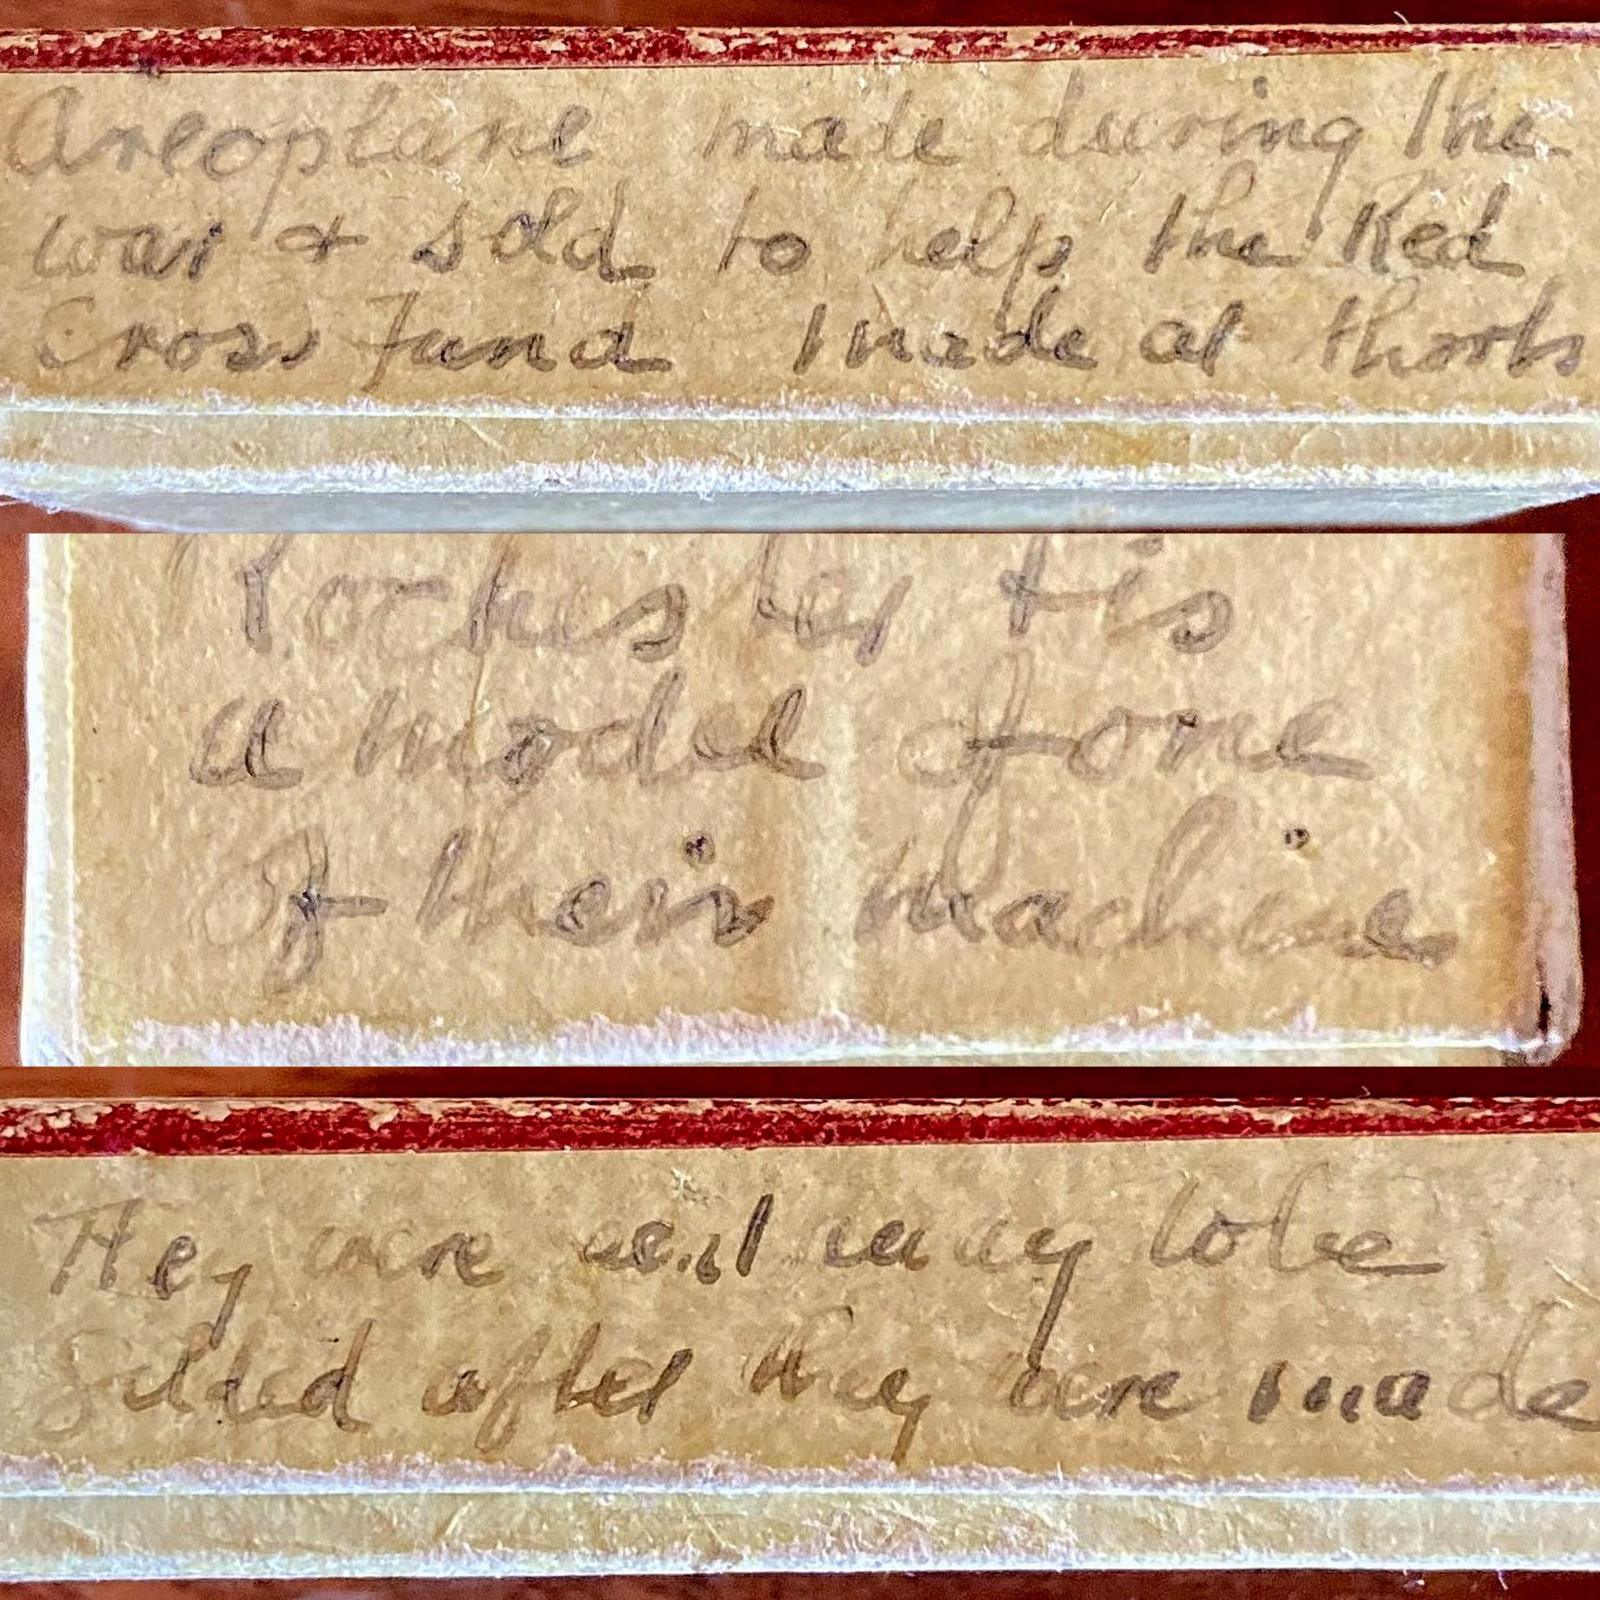 Areoplane made during the
war & sold to help the Red
Cross Fund made at Shorts
Rochester tis
a model of one
of their machine
They were sent away to be
Gilded after they were made